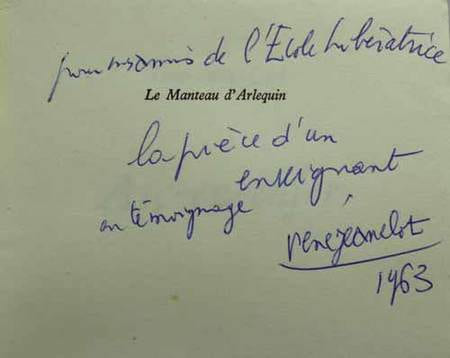 pour nos amis de l'Ecole Libératrice
Le Manteau d'Arlequin
la pièce d'un
enseignant
en témoignage
1963